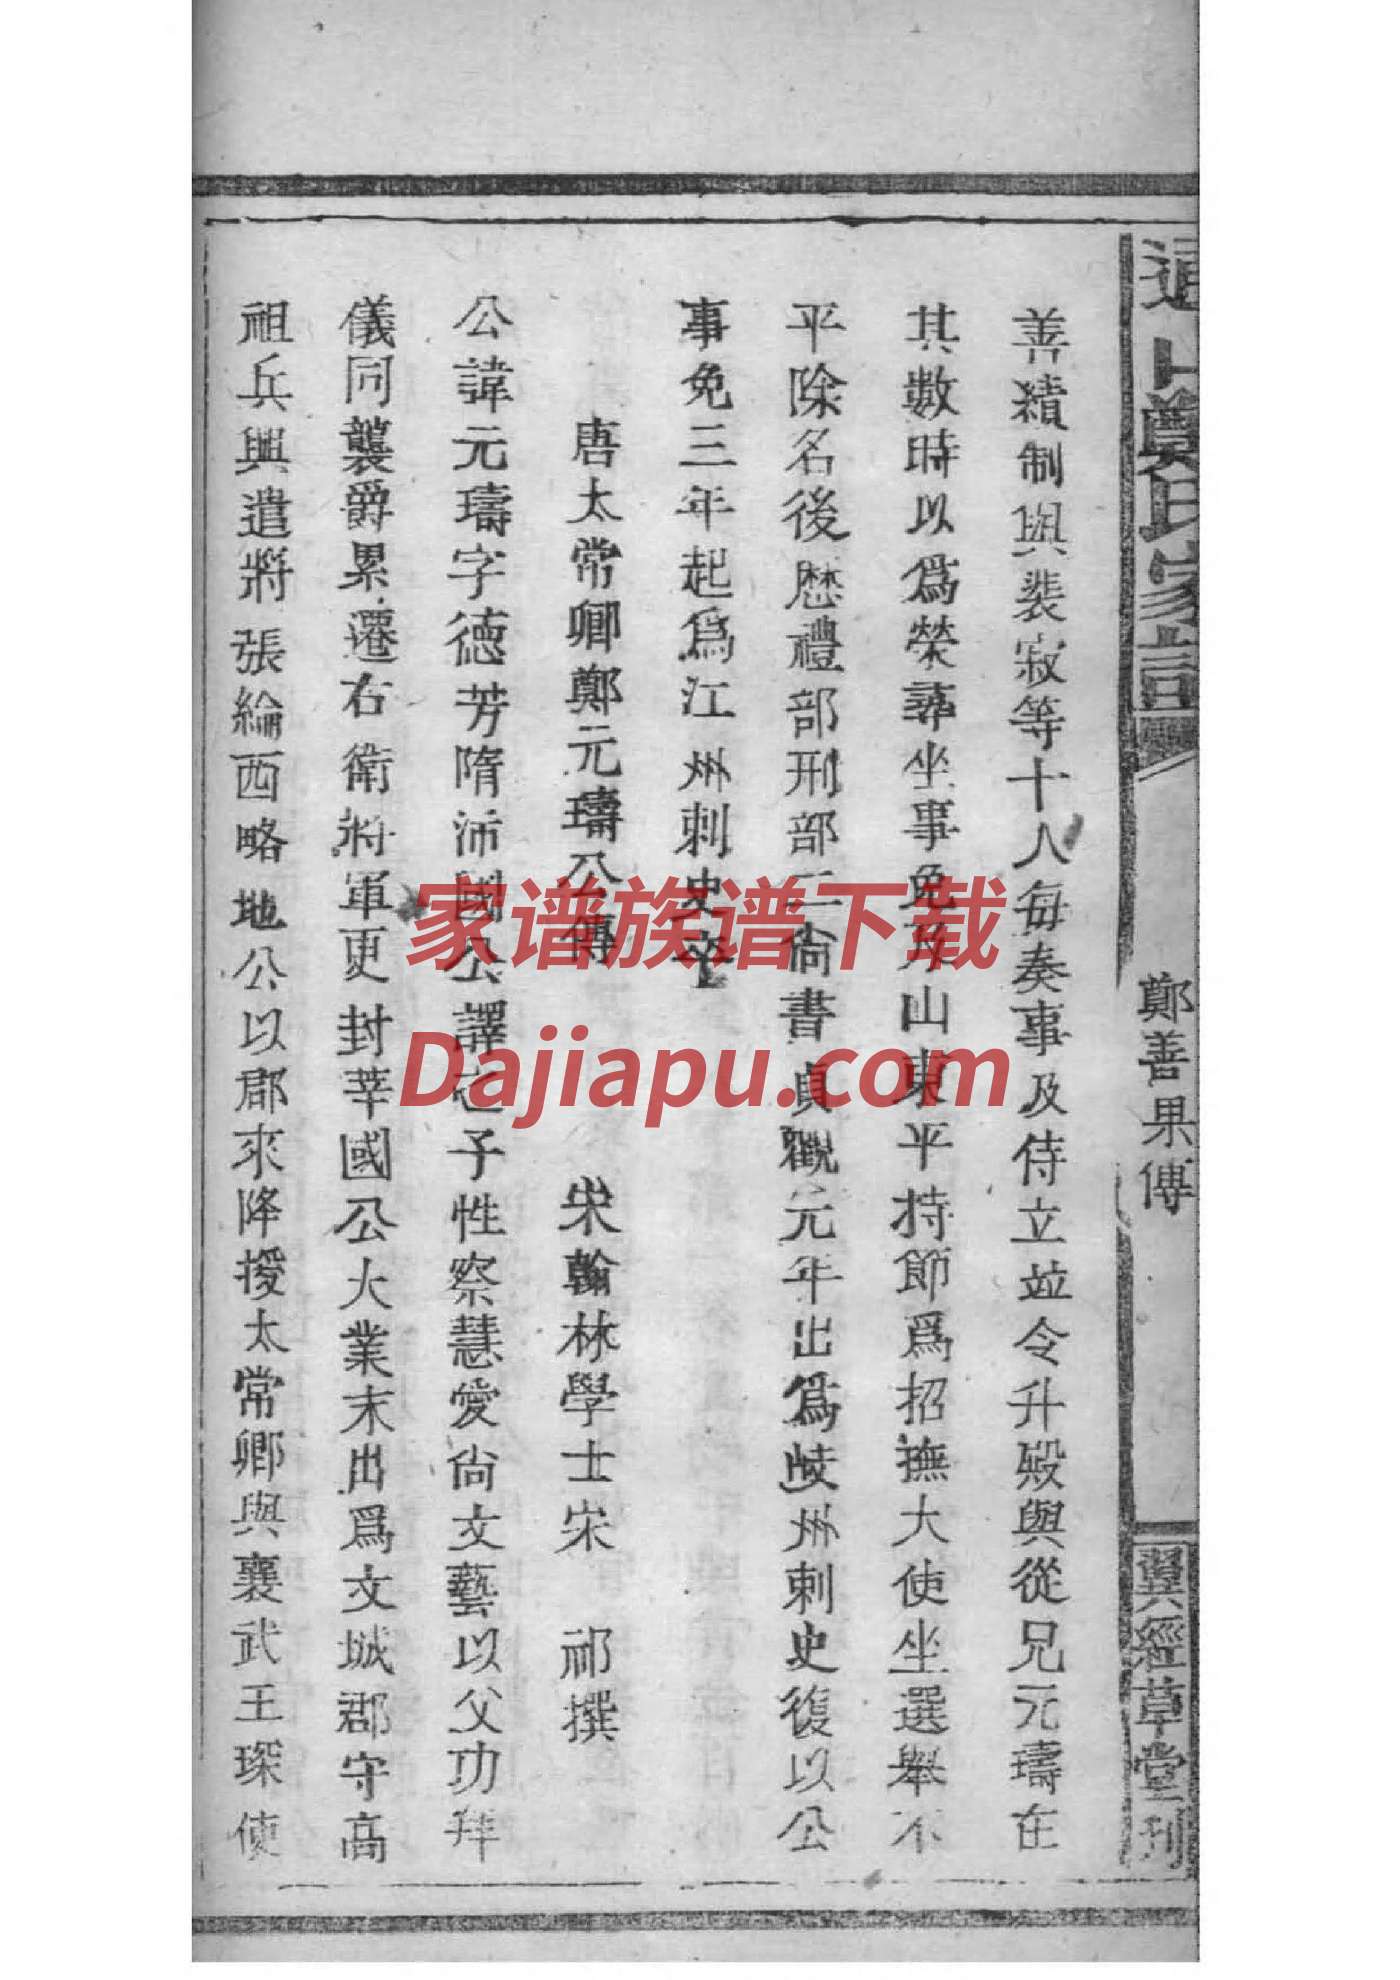 通山鄭氏家譜
鄭善果傳
翼經草堂刊
善績制與裴寂等十人每奏事及侍立並令升殿與從兄元璹在
其數時以爲榮尋坐事免及山東平持節爲招撫大使坐選舉不
平除名後歷禮部刑部二尙書貞觀元年出爲岐州刺史復以公
事免三年起爲江州刺史卒
唐太常卿鄭元璹公傳　宋翰林學士宋　祁撰
公諱元璹字德芳隋沛國公譯之子性察慧愛尙文藝以父功拜
儀同襲爵累遷右衛將軍更封莘國公大業末出爲文城郡守高
祖兵興遣將張綸西略地公以郡來降授太常卿與襄武王琛使
家谱族谱下载
Dajiapu.com